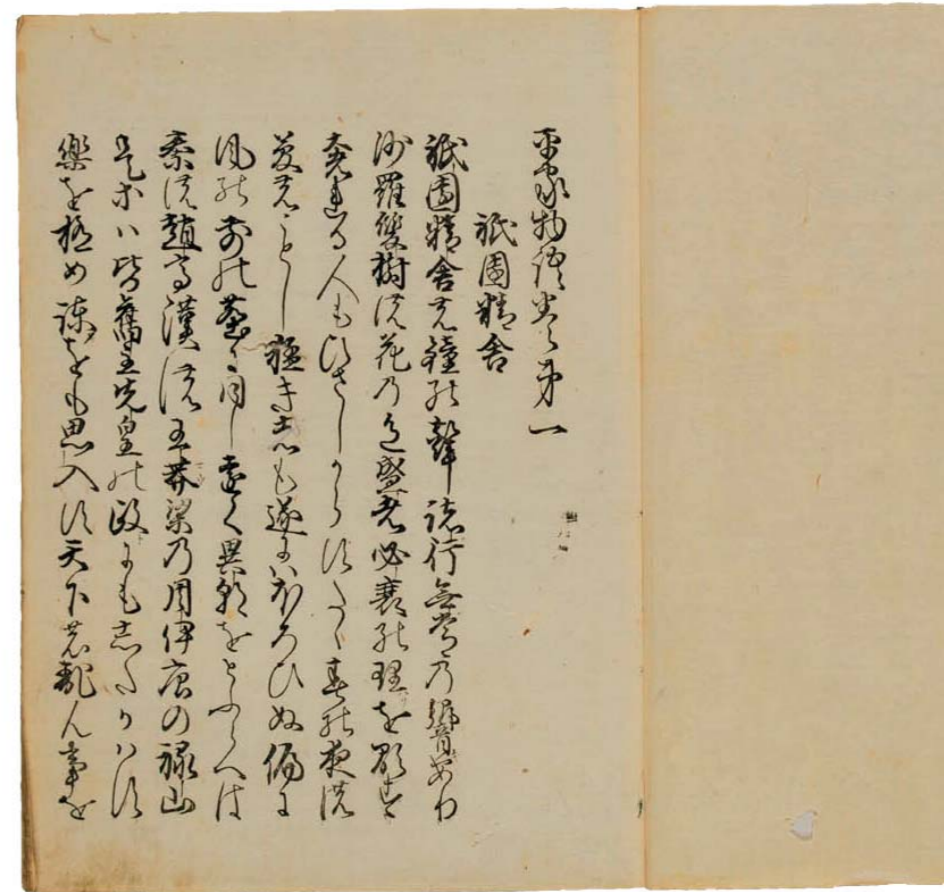 平家物語巻第一
祇園精舎
祇園精舎の鐘の聲諸行無常の響あり
沙羅雙樹の花の色盛者必衰の理を顕す
奢れる人もひさしからすたゝ春の夜の
夢のことし猛き志も遂にハほろひぬ偏に
風の前の塵に同し遠く異朝をとふらへは
秦の趙高漢の王莽梁の周伊唐の禄山
是等ハ皆舊主先皇の政にもしたかハす
樂を極め諌をも思入す天下の亂ん事を